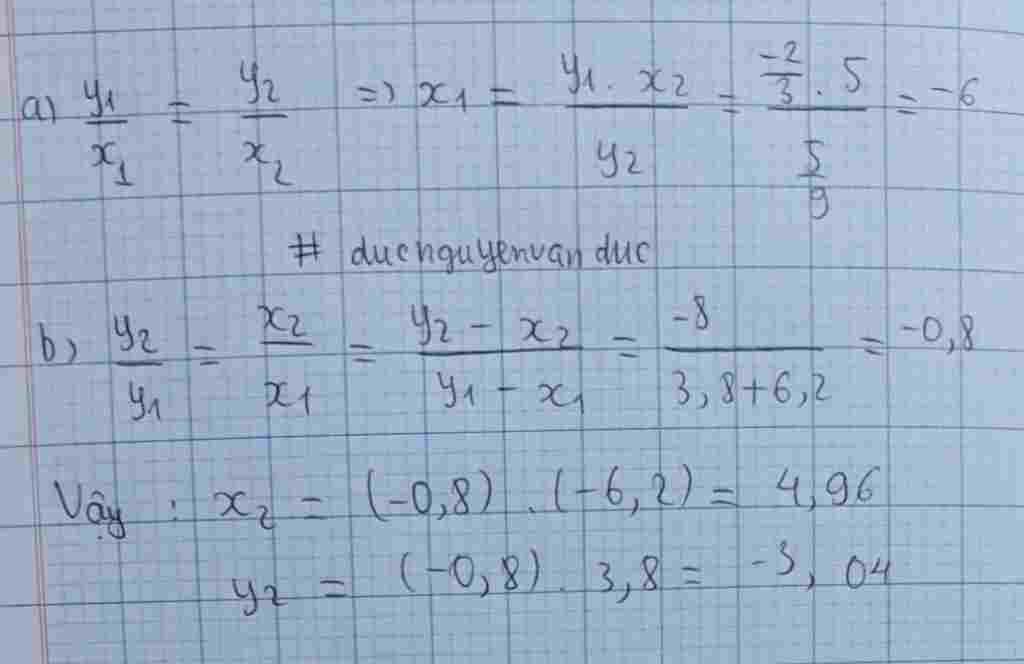 a) y1/x1 = y2/x2 => x1 = (y1 . x2)/y2 = (-2/3 . 5)/(5/9) = -6
# ducnguyenvanduc
b) y2/y1 = x2/x1 = (y2 - x2)/(y1 - x1) = -8/(3,8+6,2) = -0,8
Vậy : x2 = (-0,8) . (-6,2) = 4,96
y2 = (-0,8) . 3,8 = -3,04